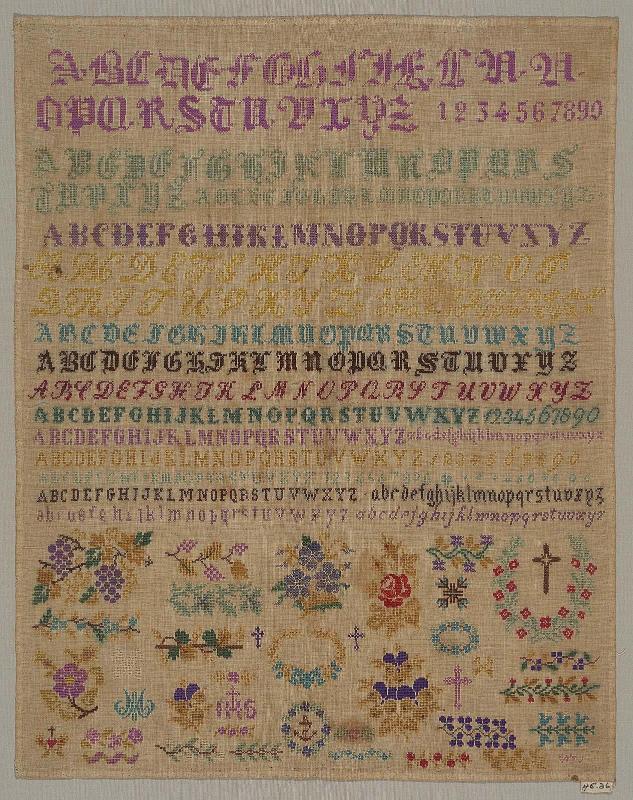 A B C D E F G H I J K L M N
O P Q R S T U V X Y Z 1 2 3 4 5 6 7 8 9 0
A B C D E F G H I K L M N O P Q R S
T U V X Y Z
A B C D E F G H I K L M N O P Q R S T U V X Y Z
A B C D E F G H I K L M N O P
A B C D E F G H I K L M N O P Q R S T U V W X Y Z
A B C D E F G H I K L M N O P Q R S T U V X Y Z
A B C D E F G H I K L M N O P Q R S T U V W X Y Z
A B C D E F G H I J K L M N O P Q R S T U V W X Y Z 1 2 3 4 5 6 7 8 9 0
A B C D E F G H I J K L M N O P Q R S T U V W X Y Z a b c d e f g h i j k l m n o p q r s t u v x y z
A B C D E F G H I J K L M N O P Q R S T U V W X Y Z 1 2 3 4 5 6 7 8 9 0
A B C D E F G H I J K L M N O P Q R S T U V W X Y Z a b c d e f g h i j k l m n o p q r s t u v x y z
a b c d e f g h i j k l m n o p q r s t u v x y z a b c d e f g h i j k l m n o p q r s t u v x y z
IHS